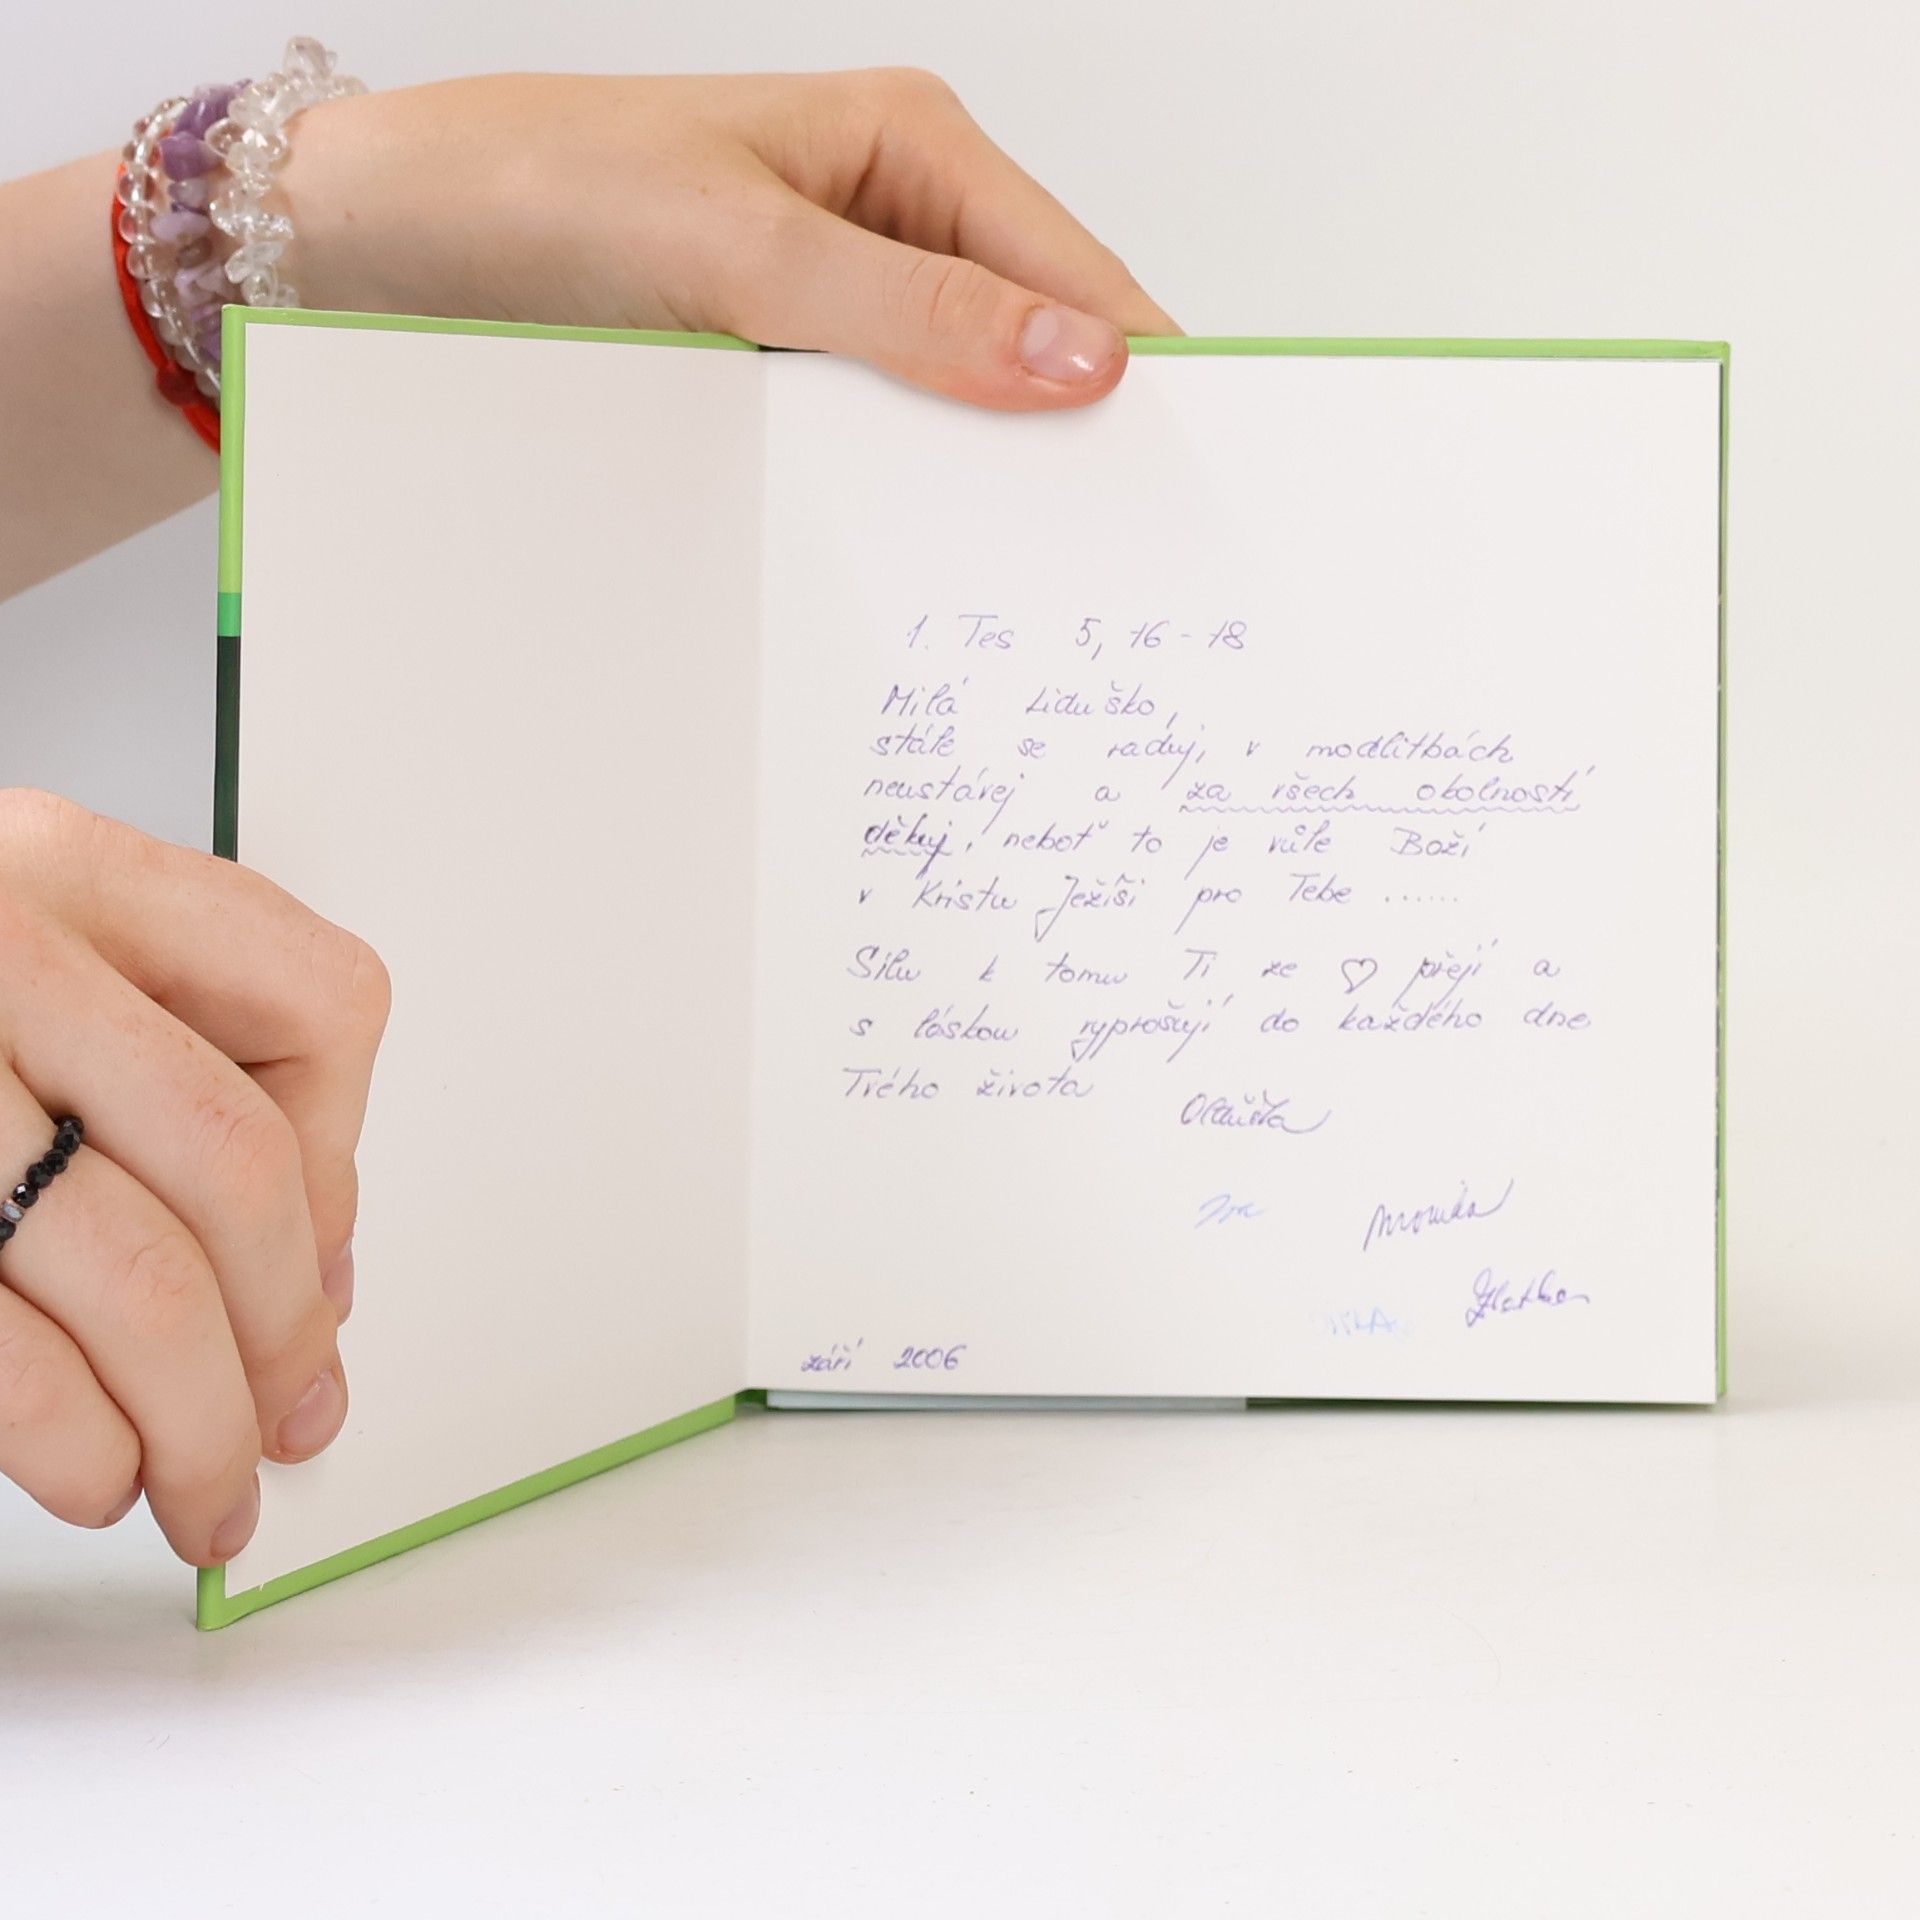 1. Tes 5, 16-18
Milá Liduško,
stále se raduj, v modlitbách
neustávej a za všech okolností
děkuj, neboť to je vůle Boží
v Kristu Ježíši pro Tebe ......
Sílu k tomu Ti ze ♡ přejí a
s láskou vyprošují do každého dne
Tvého života
Iva Monika
Zlatka
září 2006